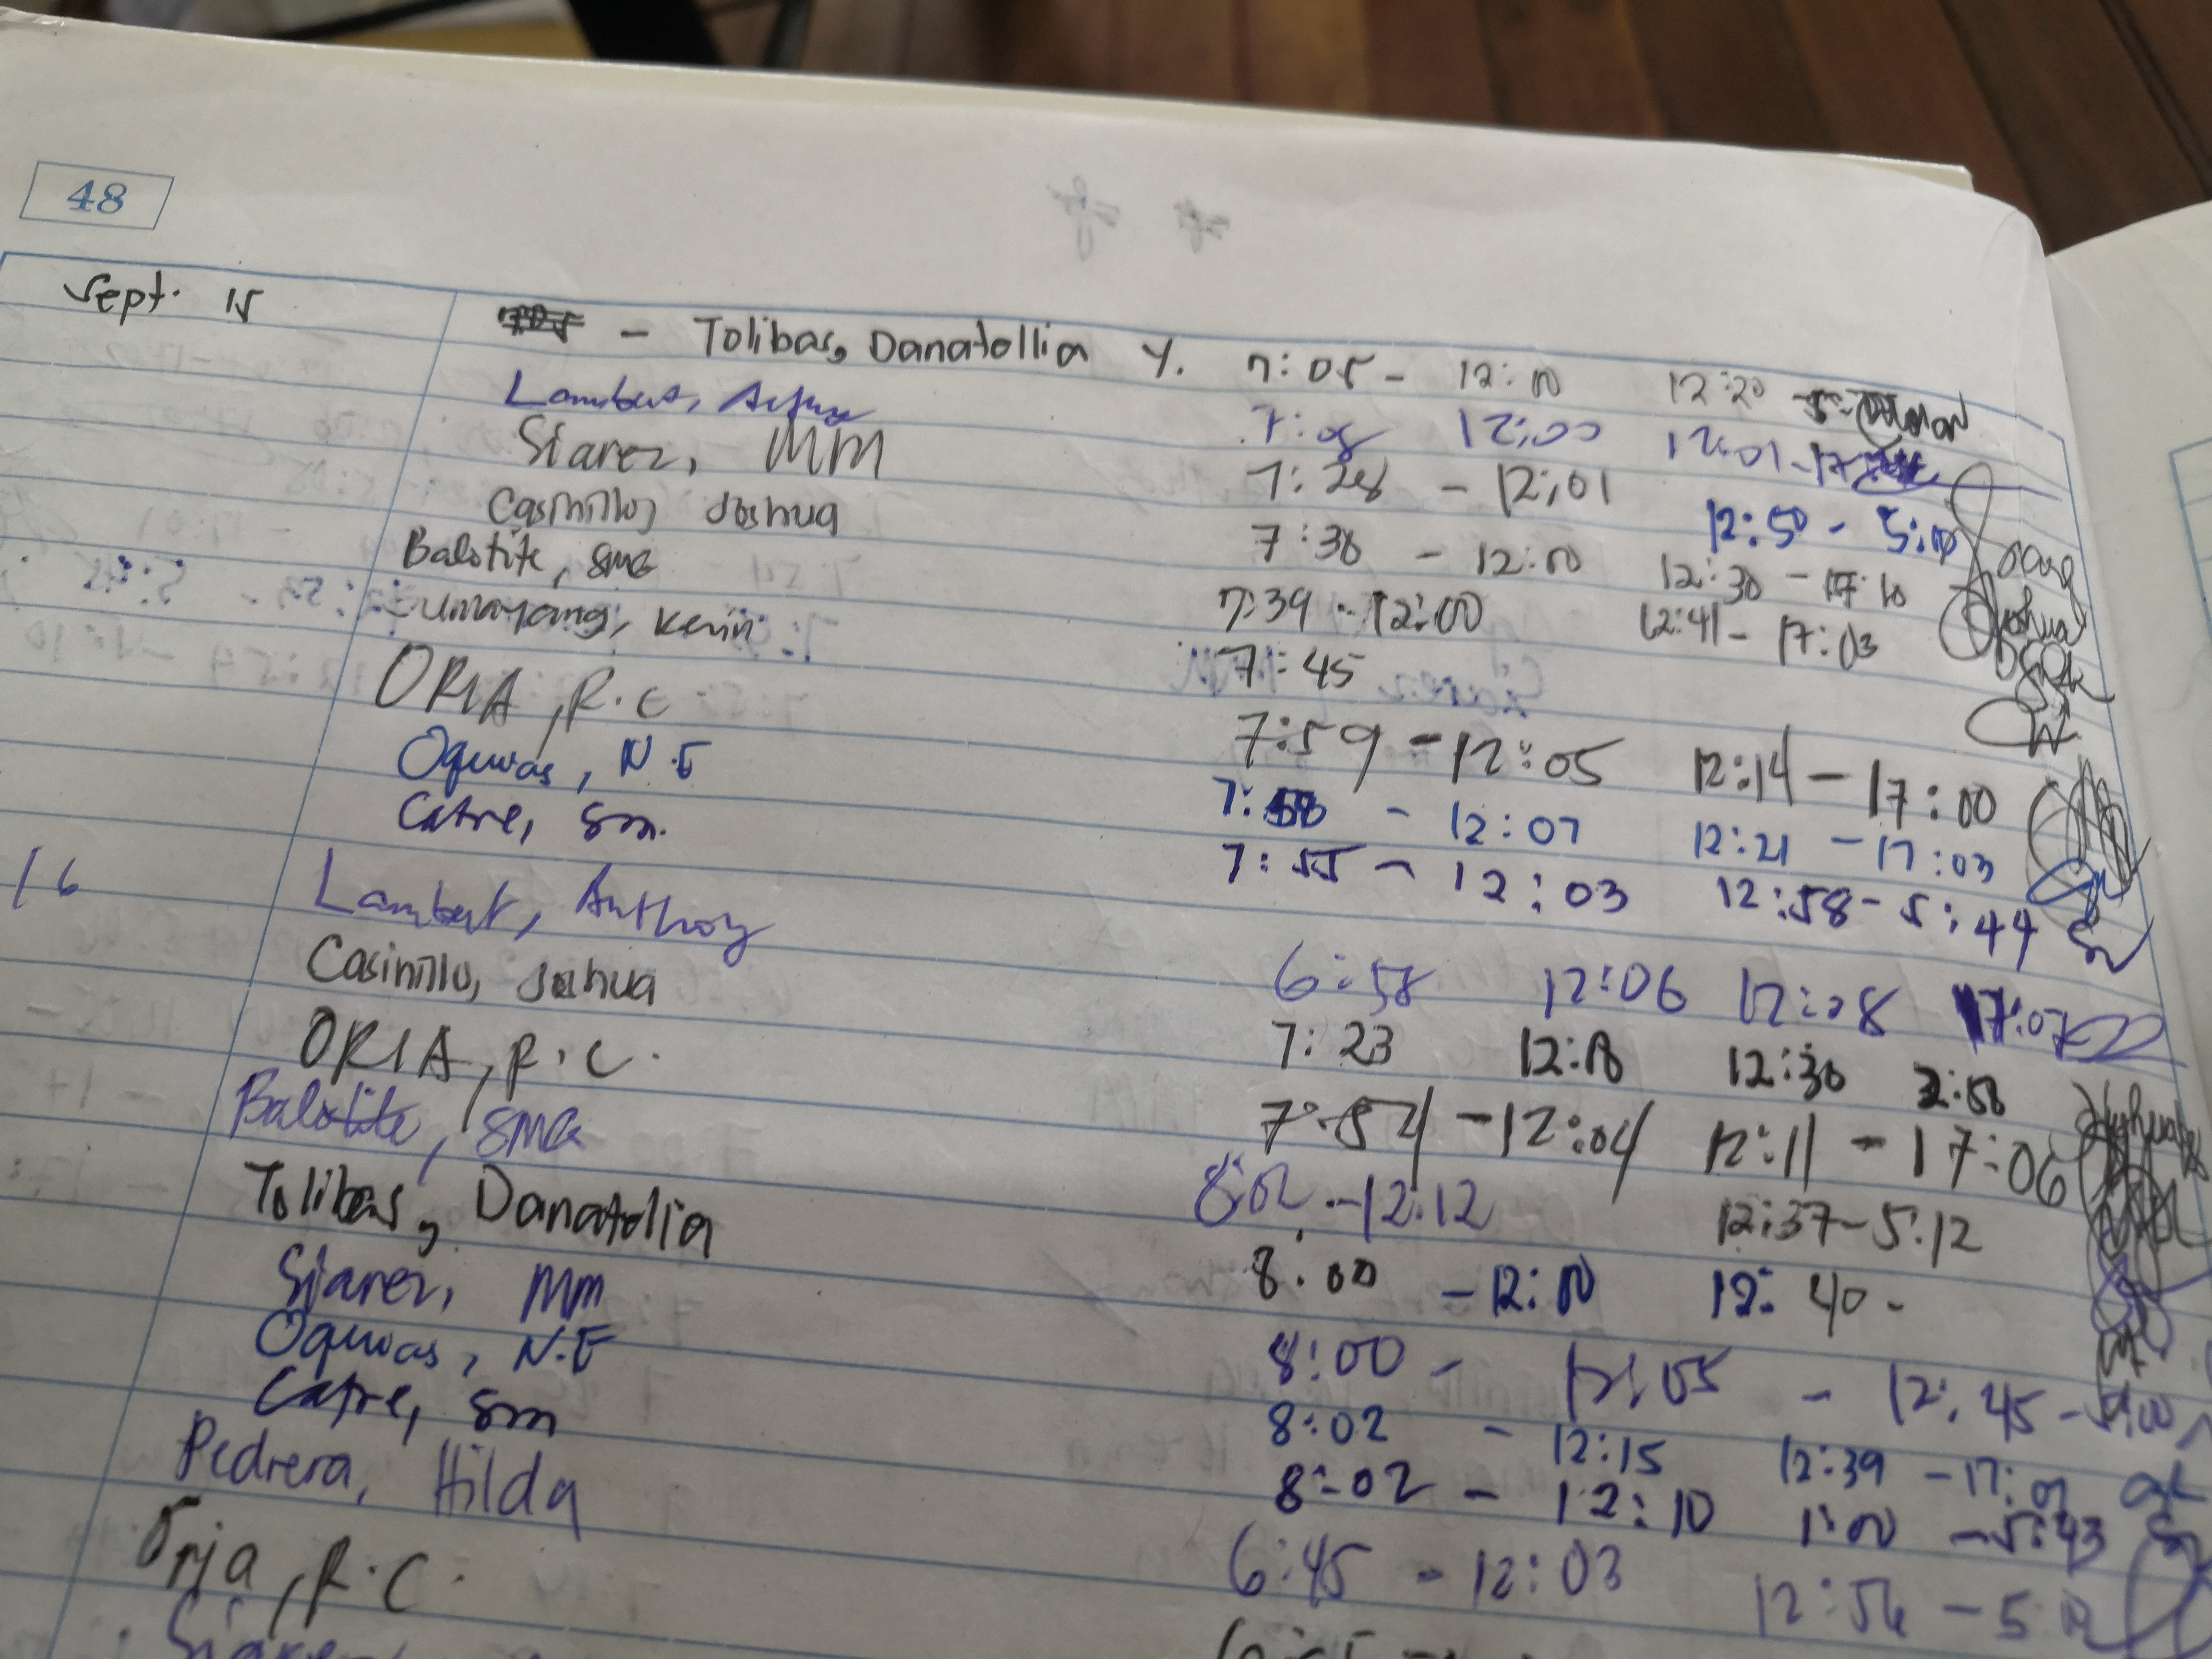 48
Sept. 15 - Tolibas, Danatollia Y. 7:05 - 12:10 12:20
Lambert, 7:08 12:00 12:01 - 17
Siarez, MM 7:28 - 12:01 12:50 - 5:10
Casinillo, Joshua 7:38 - 12:10 12:30 - 17:10
Balotite, SMG 7:39 - 12:00 12:41 - 17:03
Kevin 7:45
ORIA, R.C 7:59 - 12:05 12:14 - 17:00
Oquias, N.E 7:58 - 12:07 12:21 - 17:03
Catre, Sm. 7:55 - 12:03 12:58 - 5:44
16 Lambert, Anthony 6:58 12:06 12:08 17:07
Casinillo, Joshua 7:23 12:18 12:30
ORIA, R.C. 7:54 - 12:04 12:11 - 17:06
Balotite, SMG 8:02 - 12:12 12:37 - 5:12
Tolibas, Danatollia 8:00 - 12:10 12:40 -
Siarez, MM 8:00 - 12:05 - 12:45 -
Oquias, N.E 8:02 - 12:15 12:39 - 17:01
Catre, Sm 8:02 - 12:10 1:00 - 5:43
Pedrera, Hilda 6:45 - 12:03 12:56 -
Orja, R.C.